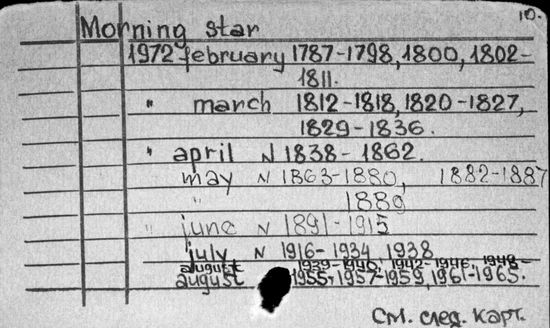 10.
Morning star
1972 february 1787-1798, 1800, 1802-
1811.
" march 1812-1818, 1820-1827,
1829-1836.
" april N 1838-1862.
may N 1863-1880, 1882-1887
" 1889
" june N 1891-1915
july N 1916-1934, 1938
august 1939-1940, 1942-1946, 1948-
august 1955, 1957-1959, 1961-1965.
См. след. карт.